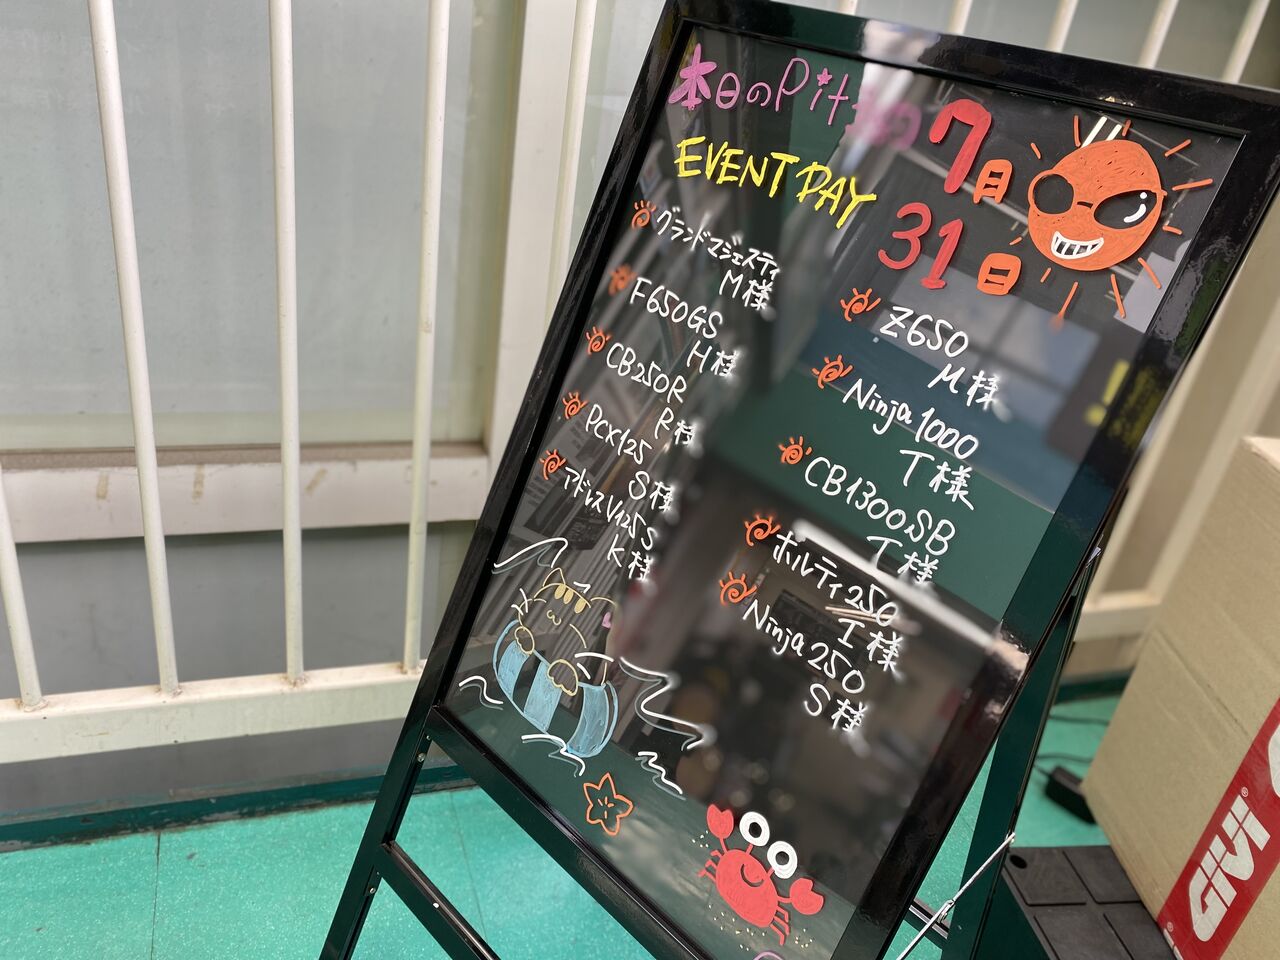 本日のPit
EVENT DAY
7月
31日
グランドマジェスティ
M様
F650GS
H様
CB250R
R様
PCX125
S様
アドレスV125S
K様
Z650
M様
Ninja1000
T様
CB1300SB
T様
ボルティ250
I様
Ninja250
S様
GIVI